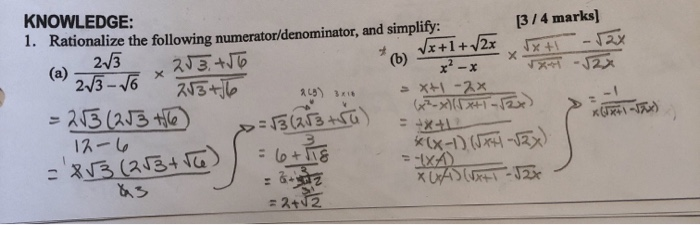 KNOWLEDGE: [3 / 4 marks]
1. Rationalize the following numerator/denominator, and simplify:
(a) 2√3 / (2√3 − √6) × (2√3 + √6) / (2√3 + √6)
= 2√3 (2√3 + √6) / (12 − 6)
= 2√3 (2√3 + √6) / 6 3
= √3 (2√3 + √6) / 3
= (6 + √18) / 3
= 2 + √2
(b) (√x+1 + √2x) / (x² − x) × (√x+1 − √2x) / (√x+1 − √2x)
= (x+1 − 2x) / ((x²−x)(√x+1 − √2x))
= (−x+1) / (x(x−1)(√x+1 − √2x))
= −(x−1) / (x(x−1)(√x+1 − √2x))
= −1 / (x(√x+1 − √2x))